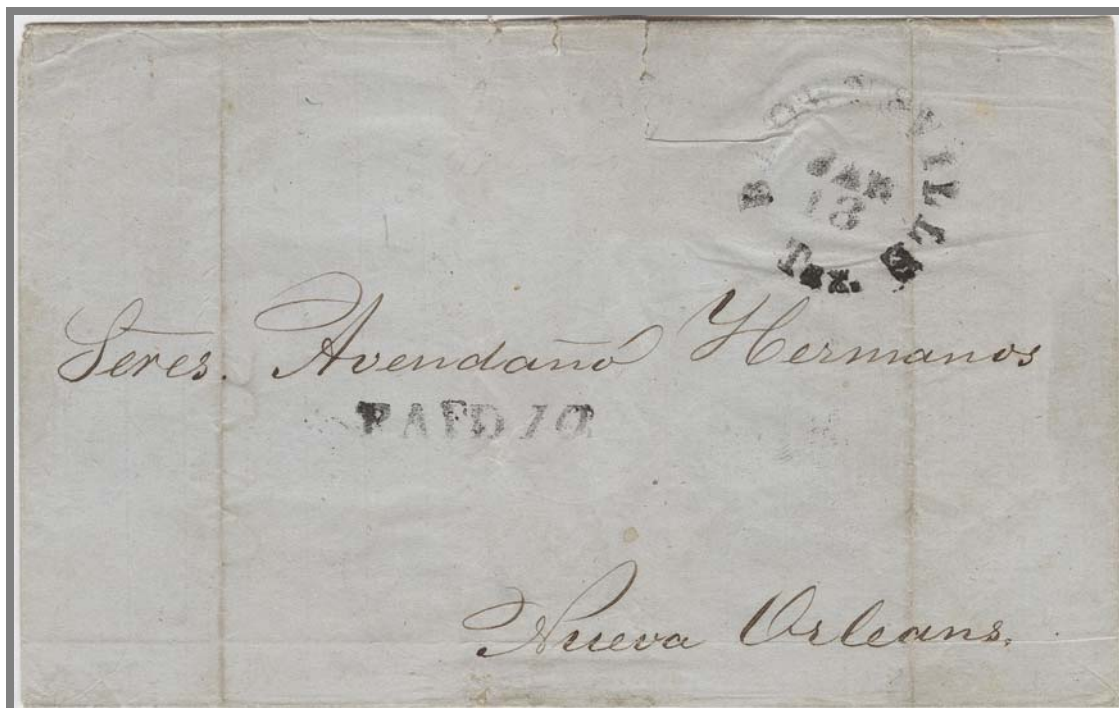 BROWNSVILLE
JAN
13
Tex.
Seres. Avendañó Hermanos
PAID 10
Nueva Orleans.